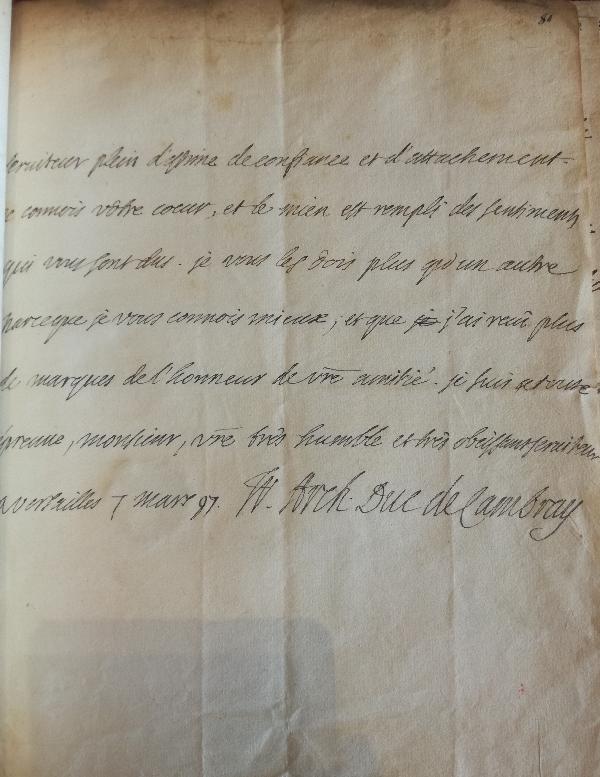 80
serviteur plein d'estime de confiance et d'attachement.
je connois vôtre coeur, et le mien est rempli des sentiments
qui vous sont dus. je vous les dois plus qu'un autre
parceque je vous connois mieux, et que je j'ai receû plus
de marques de l'honneur de vre amitié. je suis a toute
épreuve, monsieur, vre très humble et très obéissant serviteur
a versailles 7 mars 97. Fr. Arch. Duc de Cambray